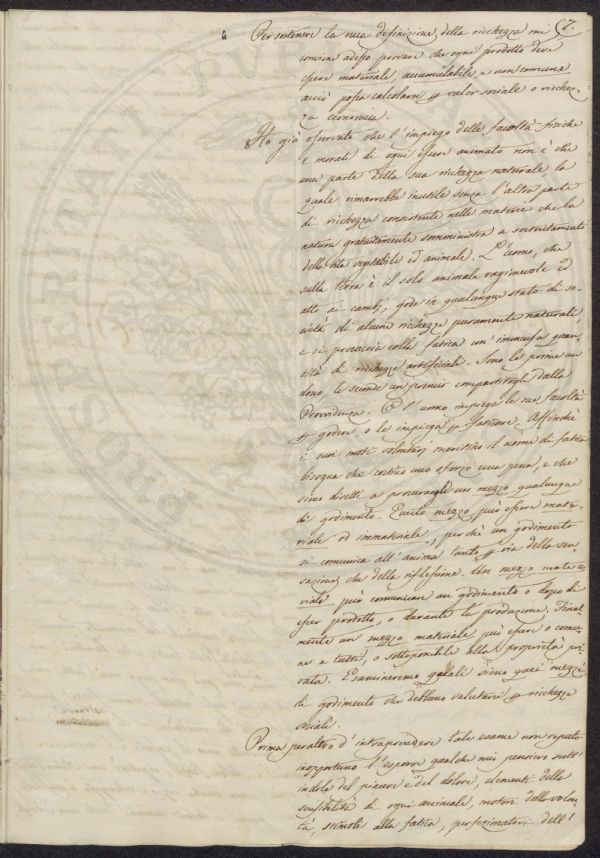 7.
Per sostenere la mia definizione della ricchezza me
conviene adesso provare che ogni prodotto deve
essere materiale, accumulabile, e non comune
acciò possa calcolarsi valor sociale o ricchez-
za economica.
Ho già osservato che l'impiego delle facoltà fisiche
e morali di ogni essere animato non è che
una parte della sua ricchezza naturale la
quale rimarrebbe inutile senza l'altra parte
di ricchezza consistente nelle materie che la
natura gratuitamente somministra a sostentamento
della vita vegetabile ed animale. L'uomo, che
sulla terra è il solo animale ragionevole ed
atto ai cambj, gode in qualunque stato di so-
cietà di alcune ricchezze puramente naturali
e si procaccia colla fatica un'immensa quan-
tità di ricchezze artificiali. Sono le prime un
dono, le seconde un premio compartitogli dalla
Provvidenza. O l'uomo impiega le sue facoltà
godere, o le impiega faticare. Affinchè
i suoi moti volontarj meritino il nome di fatica
bisogna che costino uno sforzo una pena, e che
sieno diretti a procurargli un mezzo qualunque
di godimento. Questo mezzo può essere mate-
riale od immateriale, perchè un godimento
si comunica all'anima tanto via della sen-
sazione che della riflessione. Un mezzo mate-
riale può comunicare un godimento o dopo di
esser prodotto, o durante la produzione. Final-
mente un mezzo materiale può essere o comu-
ne a tutti, o sottoponibile alla proprietà pri-
vata. Esamineremo quali sieno quei mezzi
di godimento che debbano valutarsi ricchezze
sociali.
Prima peraltro d'intraprendere tale esame non reputo
inopportuno l'esporre qualche mio pensiero sull'
indole del piacere e del dolore, elementi della
sensibilità di ogni animale, motori della volon-
tà, stimoli alla fatica, perfezionatori dell'